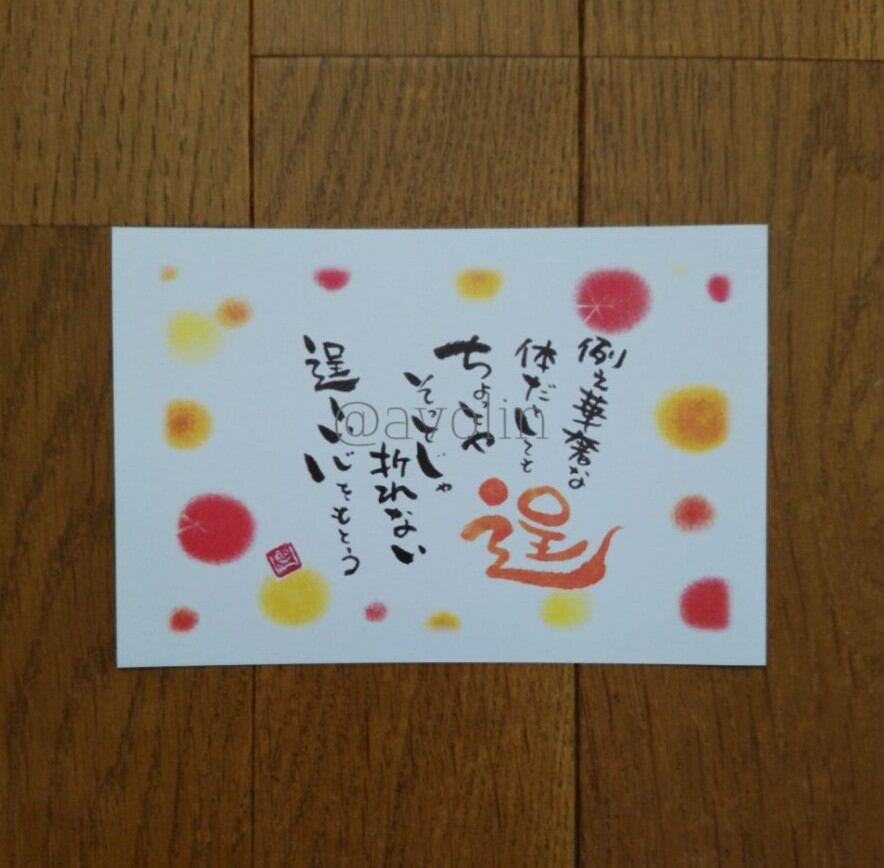 例え華奢な
体だとしても
ちょっとや
そっとじゃ
折れない
逞しい心をもとう
逞
@ayolin